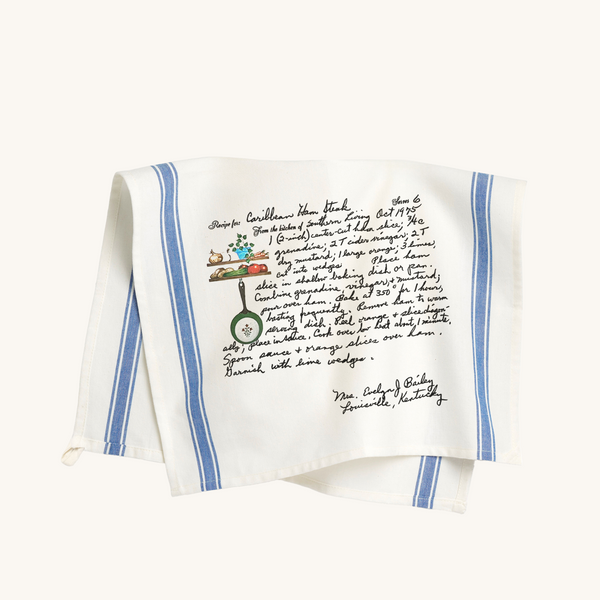 Recipe for: Caribbean Ham Steak Serves 6
From the kitchen of Southern Living Oct 1975
1 (2-inch) center-cut ham slice; 3/4 c
grenadine; 2 T cider vinegar; 2 T
dry mustard; 1 large orange; 3 limes,
cut into wedges Place ham
slice in shallow baking dish or pan.
Combine grenadine, vinegar, & mustard;
pour over ham. Bake at 350° for 1 hour,
basting frequently. Remove ham to warm
serving dish. Peel orange & slice diagon-
ally; place in sauce. Cook over low heat about 1 minute.
Spoon sauce & orange slices over ham.
Garnish with lime wedges.
Mrs. Evelyn J Bailey
Louisville, Kentucky